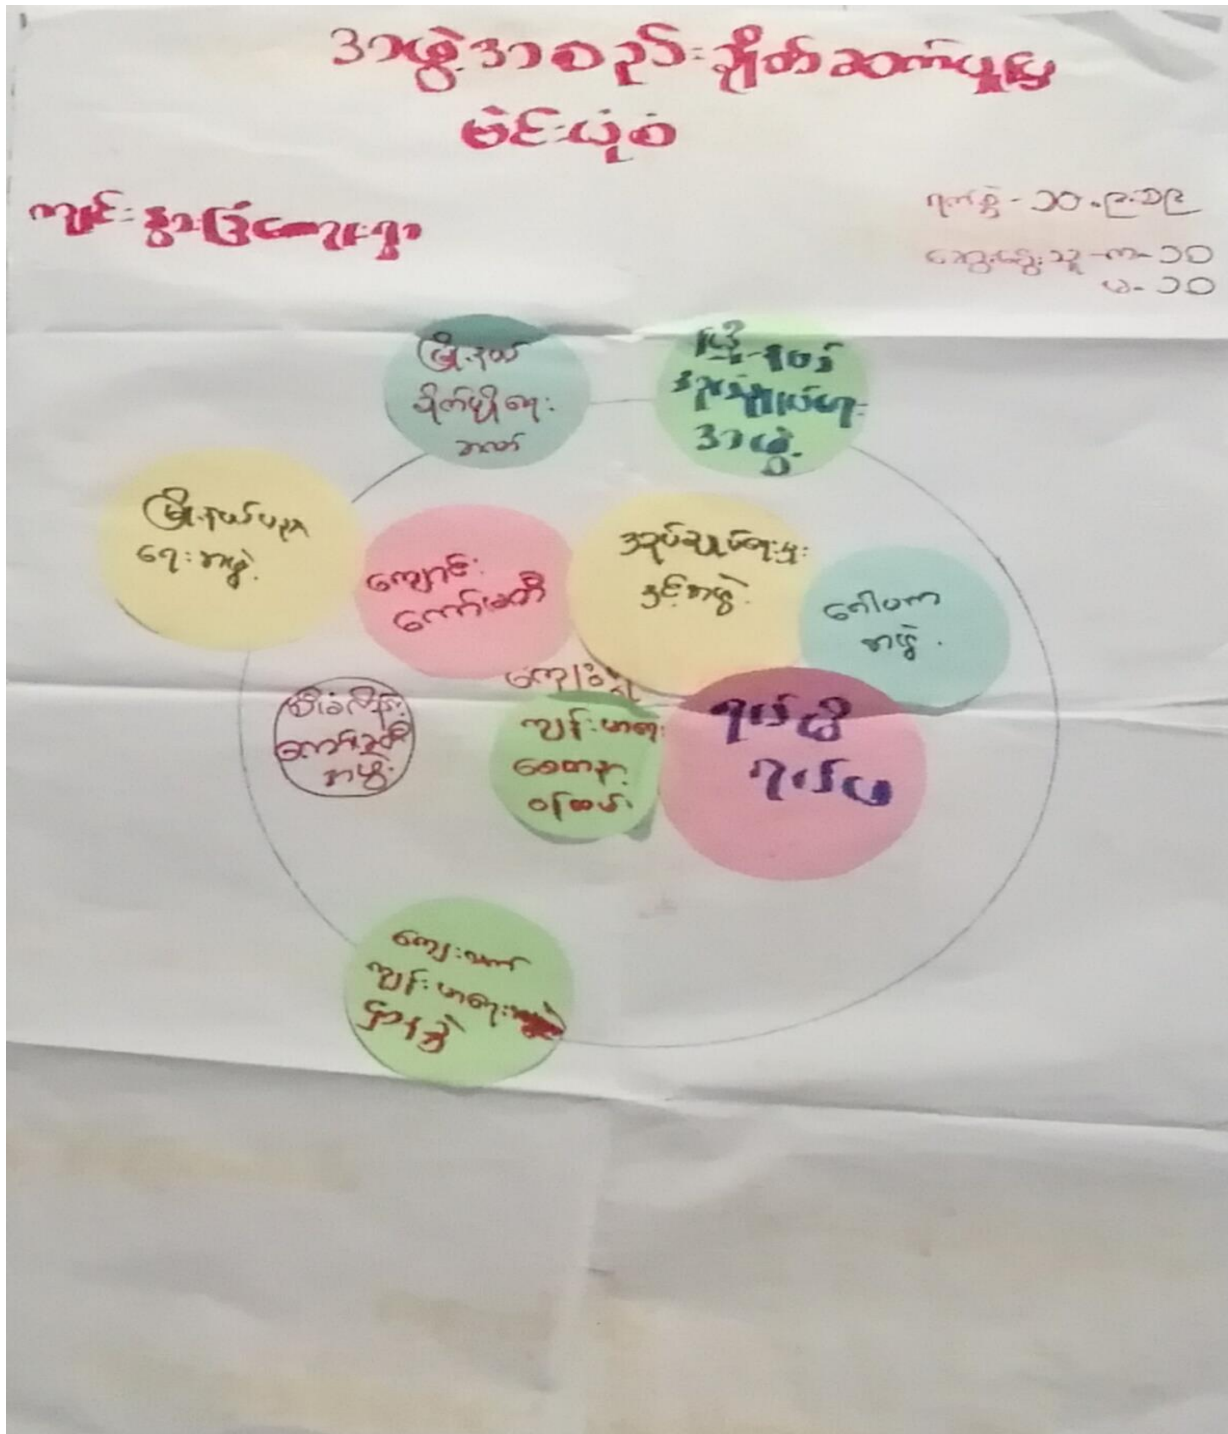 အဖွဲ့အစည်းချိတ်ဆက်မှုပြ
မဲင်းယုံစံ
ကျင်းနွားခြံကျေးရွာ
ရက်စွဲ - ၁၀.၉.၁၉
ဆွေးနွေးသူ - က - ၁၀
မ - ၁၀
မြို့နယ်
စိုက်ပျိုးရေး
ဌာန
မြို့နယ်
အုပ်ချုပ်ရေး
အဖွဲ့
မြို့နယ်ပညာ
ရေးအဖွဲ့
ကျောင်း
ကော်မတီ
အုပ်ချုပ်ရေးမှူး
နှင့်အဖွဲ့
ဂေါပက
အဖွဲ့
မီးလင်း
ကော်မတီ
အဖွဲ့
ကျေးရွာ
ကျန်းမာရေး
စေတနာ့
ဝန်ထမ်း
ရပ်မိ
ရပ်ဖ
ကျေးလက်
ကျန်းမာရေး
ဌာနခွဲ